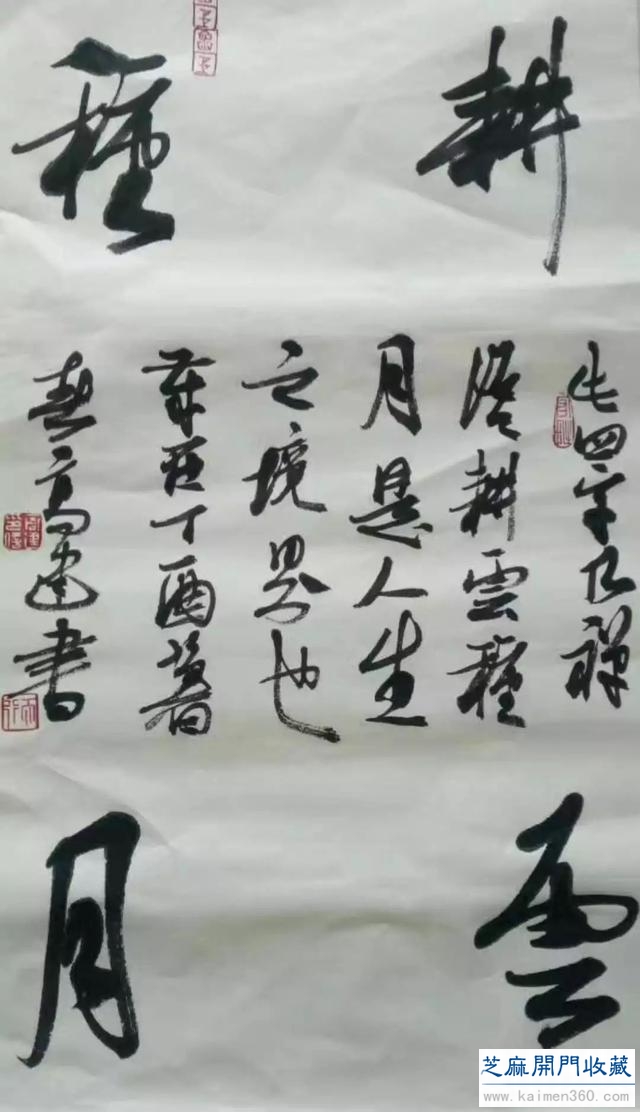 耕雲
種月
此四字乃禪
語耕雲種
月是人生
之境界也
丁酉暮
春高建書
芝麻開門收藏
www.kaimen360.com